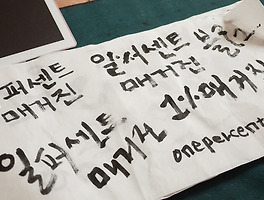 퍼센트
매거진
일퍼센트
매거진
일퍼센트
매거진
1%매거진
onepercent